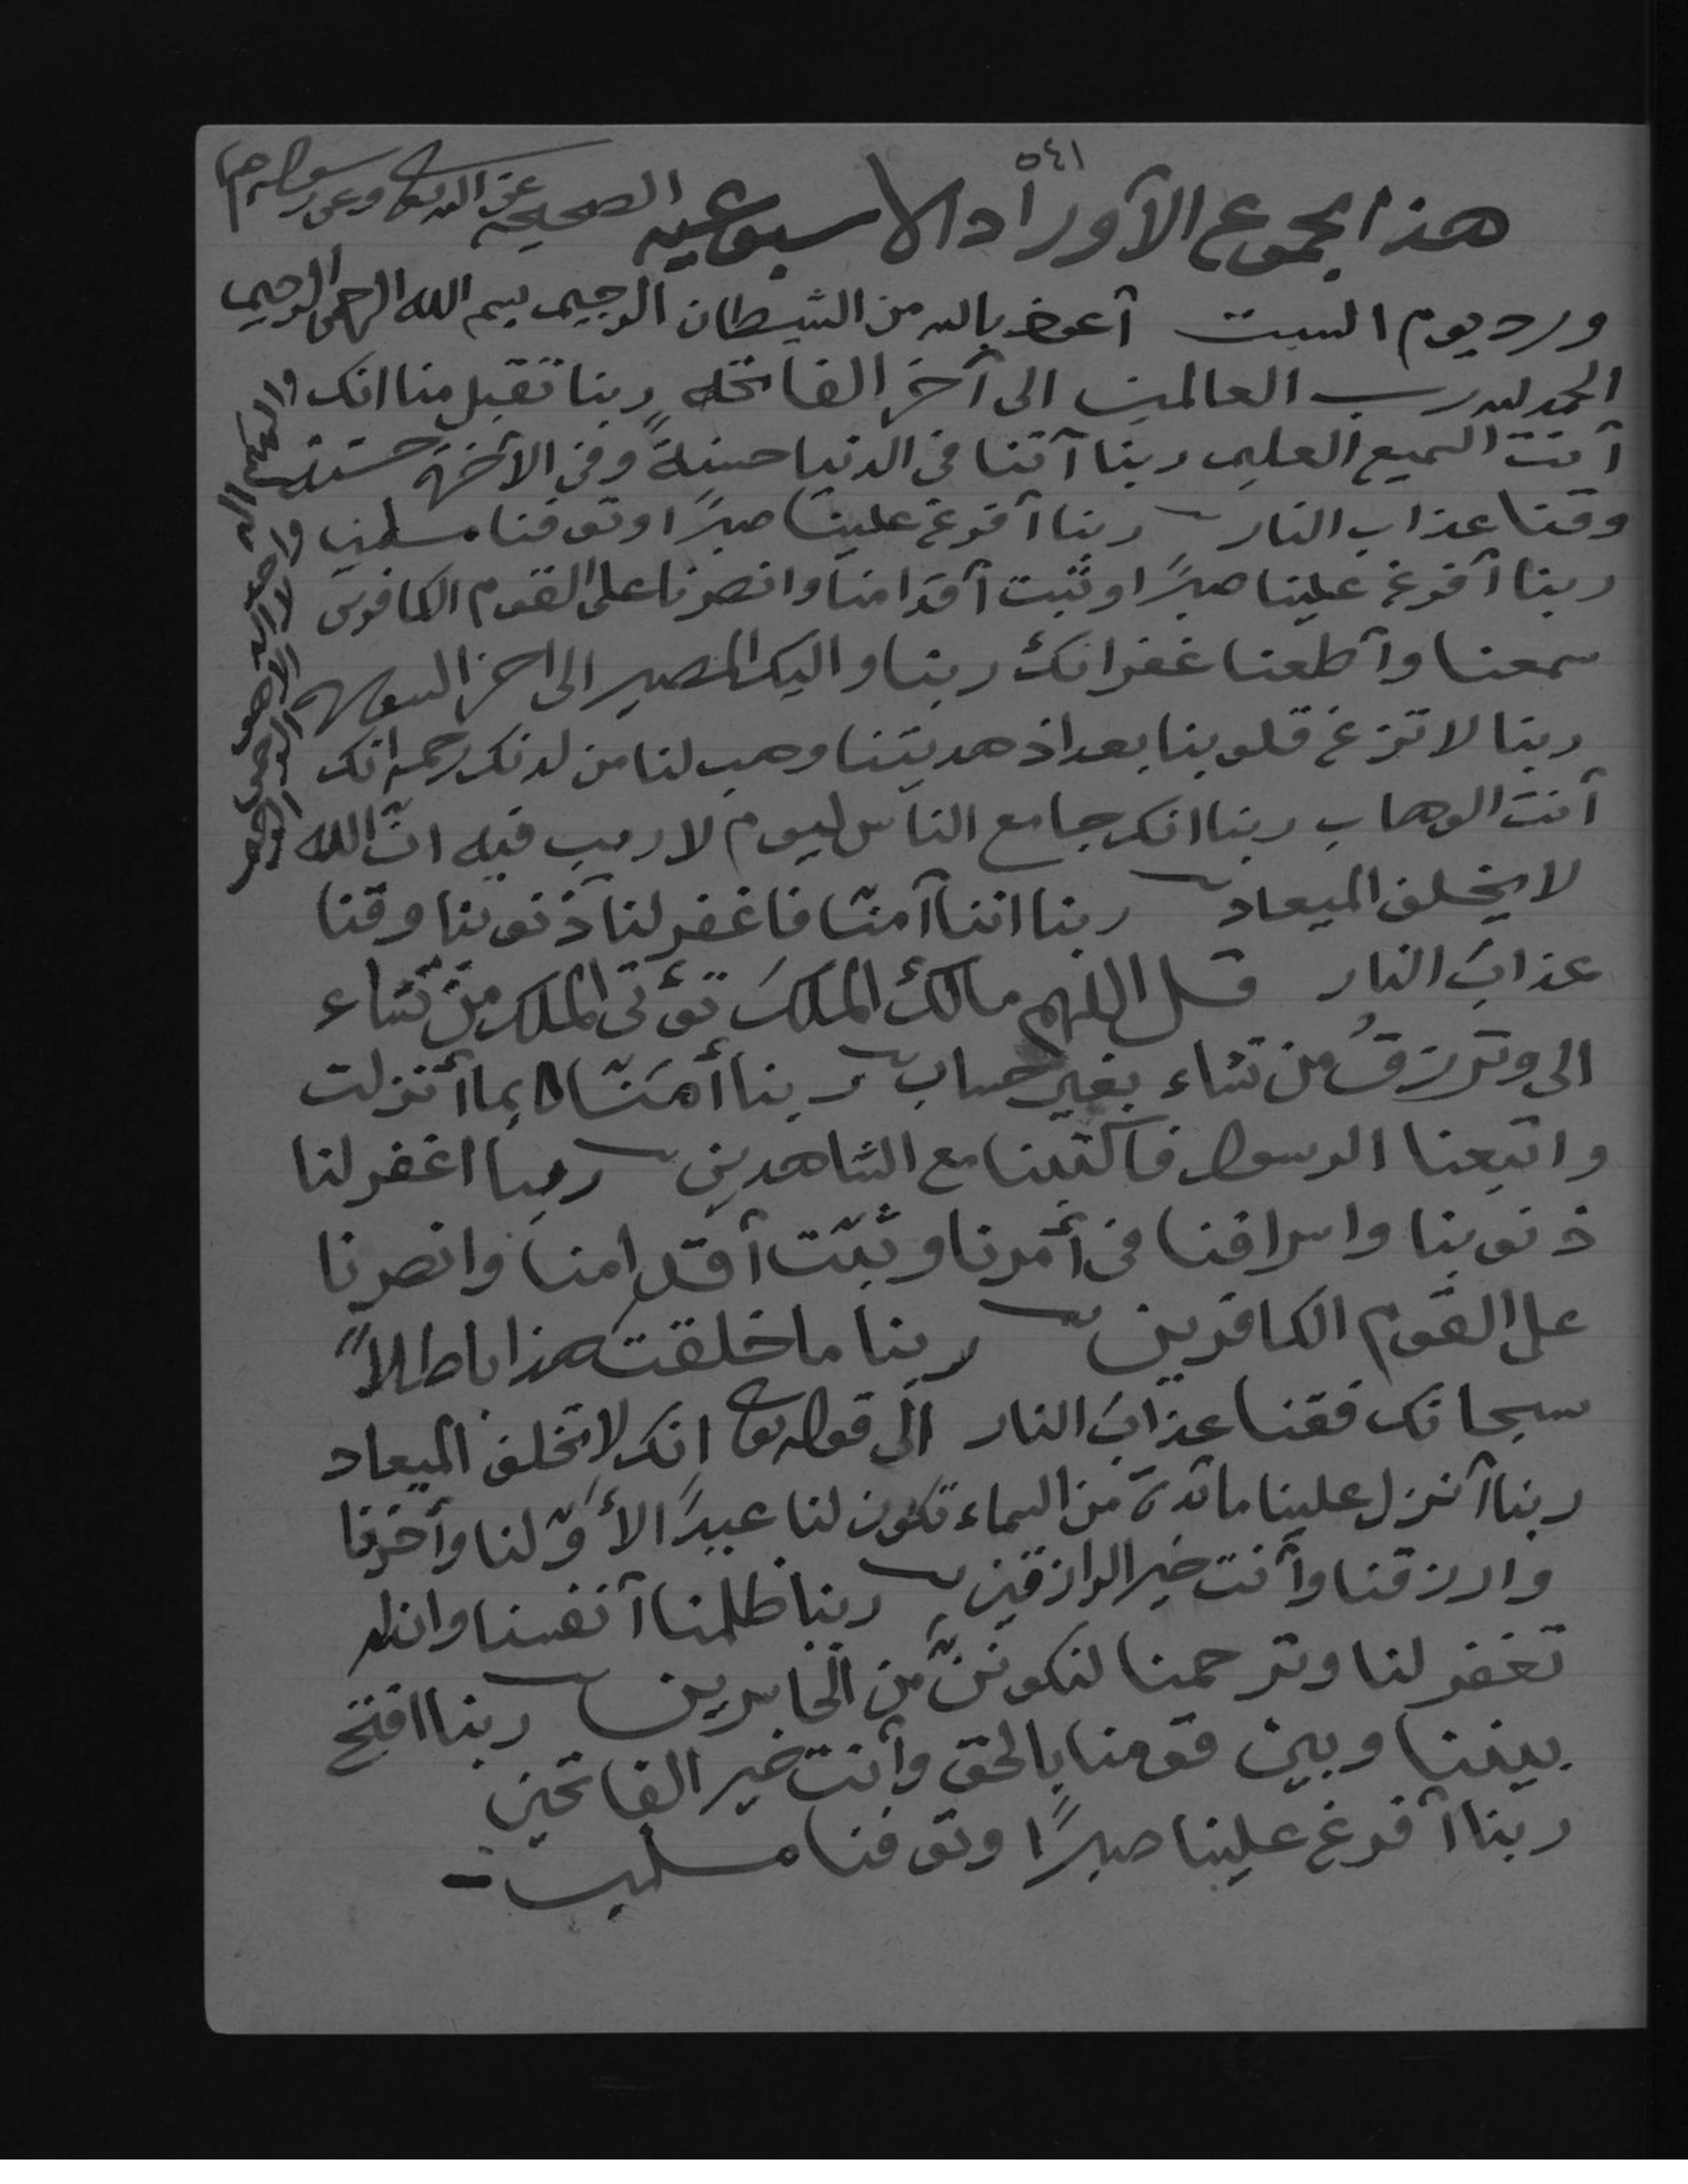 ٥٤١
هذا مجموع الآوراد الاسبوعيه الصحيحه عن الله تعالى وعن رسوله
ورد يوم السبت آعوذ بالله من الشيطان الرجيم بسم الله الرحمن الرحيم
الحمد لله رب العالمين الى آخر الفاتحه ربنا تقبل منا انك
آنت السميع العليم ربنا آتنا في الدنيا حسنةً وفي الآخرة حسنة
وقنا عذاب النار ربنا آفرغ علينا صبرًا وتوفنا مسلمين
ربنا آفرغ علينا صبرًا وثبت آقدامنا وانصرنا على القوم الكافرين
سمعنا وآطعنا غفرانك ربنا واليك المصير الى اخر السوره
ربنا لا تزغ قلوبنا بعد اذ هديتنا وهب لنا من لدنك رحمه انك
آنت الوهاب ربنا انك جامع الناس ليوم لا ريب فيه انّ الله
لا يخلف الميعاد ربنا اننا آمنّا فاغفر لنا ذنوبنا وقنا
عذابَ النار قل اللهم مالكَ الملك تؤتي الملك من تشاء
الى وترزقُ من تشاء بغير حساب ربنا أمَنّا بما أنزلت
واتبعنا الرسول فآكتبنا مع الشاهدين ربنا اغفر لنا
ذنوبنا واسرافنا في أمرنا وثبّت آقدامنا وانصرنا
على القوم الكافرين ربنا ما خلقت هذا باطلاً
سبحانك فقنا عذابَ النار الى قوله تعالى انك لا تخلف الميعاد
ربنا آنزل علينا مائدة من السماء تكون لنا عيدًا لأوّلنا وأخرنا
وارزقنا وآنت خير الرازقين ربنا ظلمنا آنفسنا وان لم
تغفر لنا وترحمنا لنكوننّ من الخاسرين ربنا افتح
بيننا وبين قومنا بالحق وأنت خير الفاتحين
ربنا آفرغ علينا صبرًا وتوفنا مسلمين
والهكم اله واحد لا اله الا هو الرحمن الرحيم